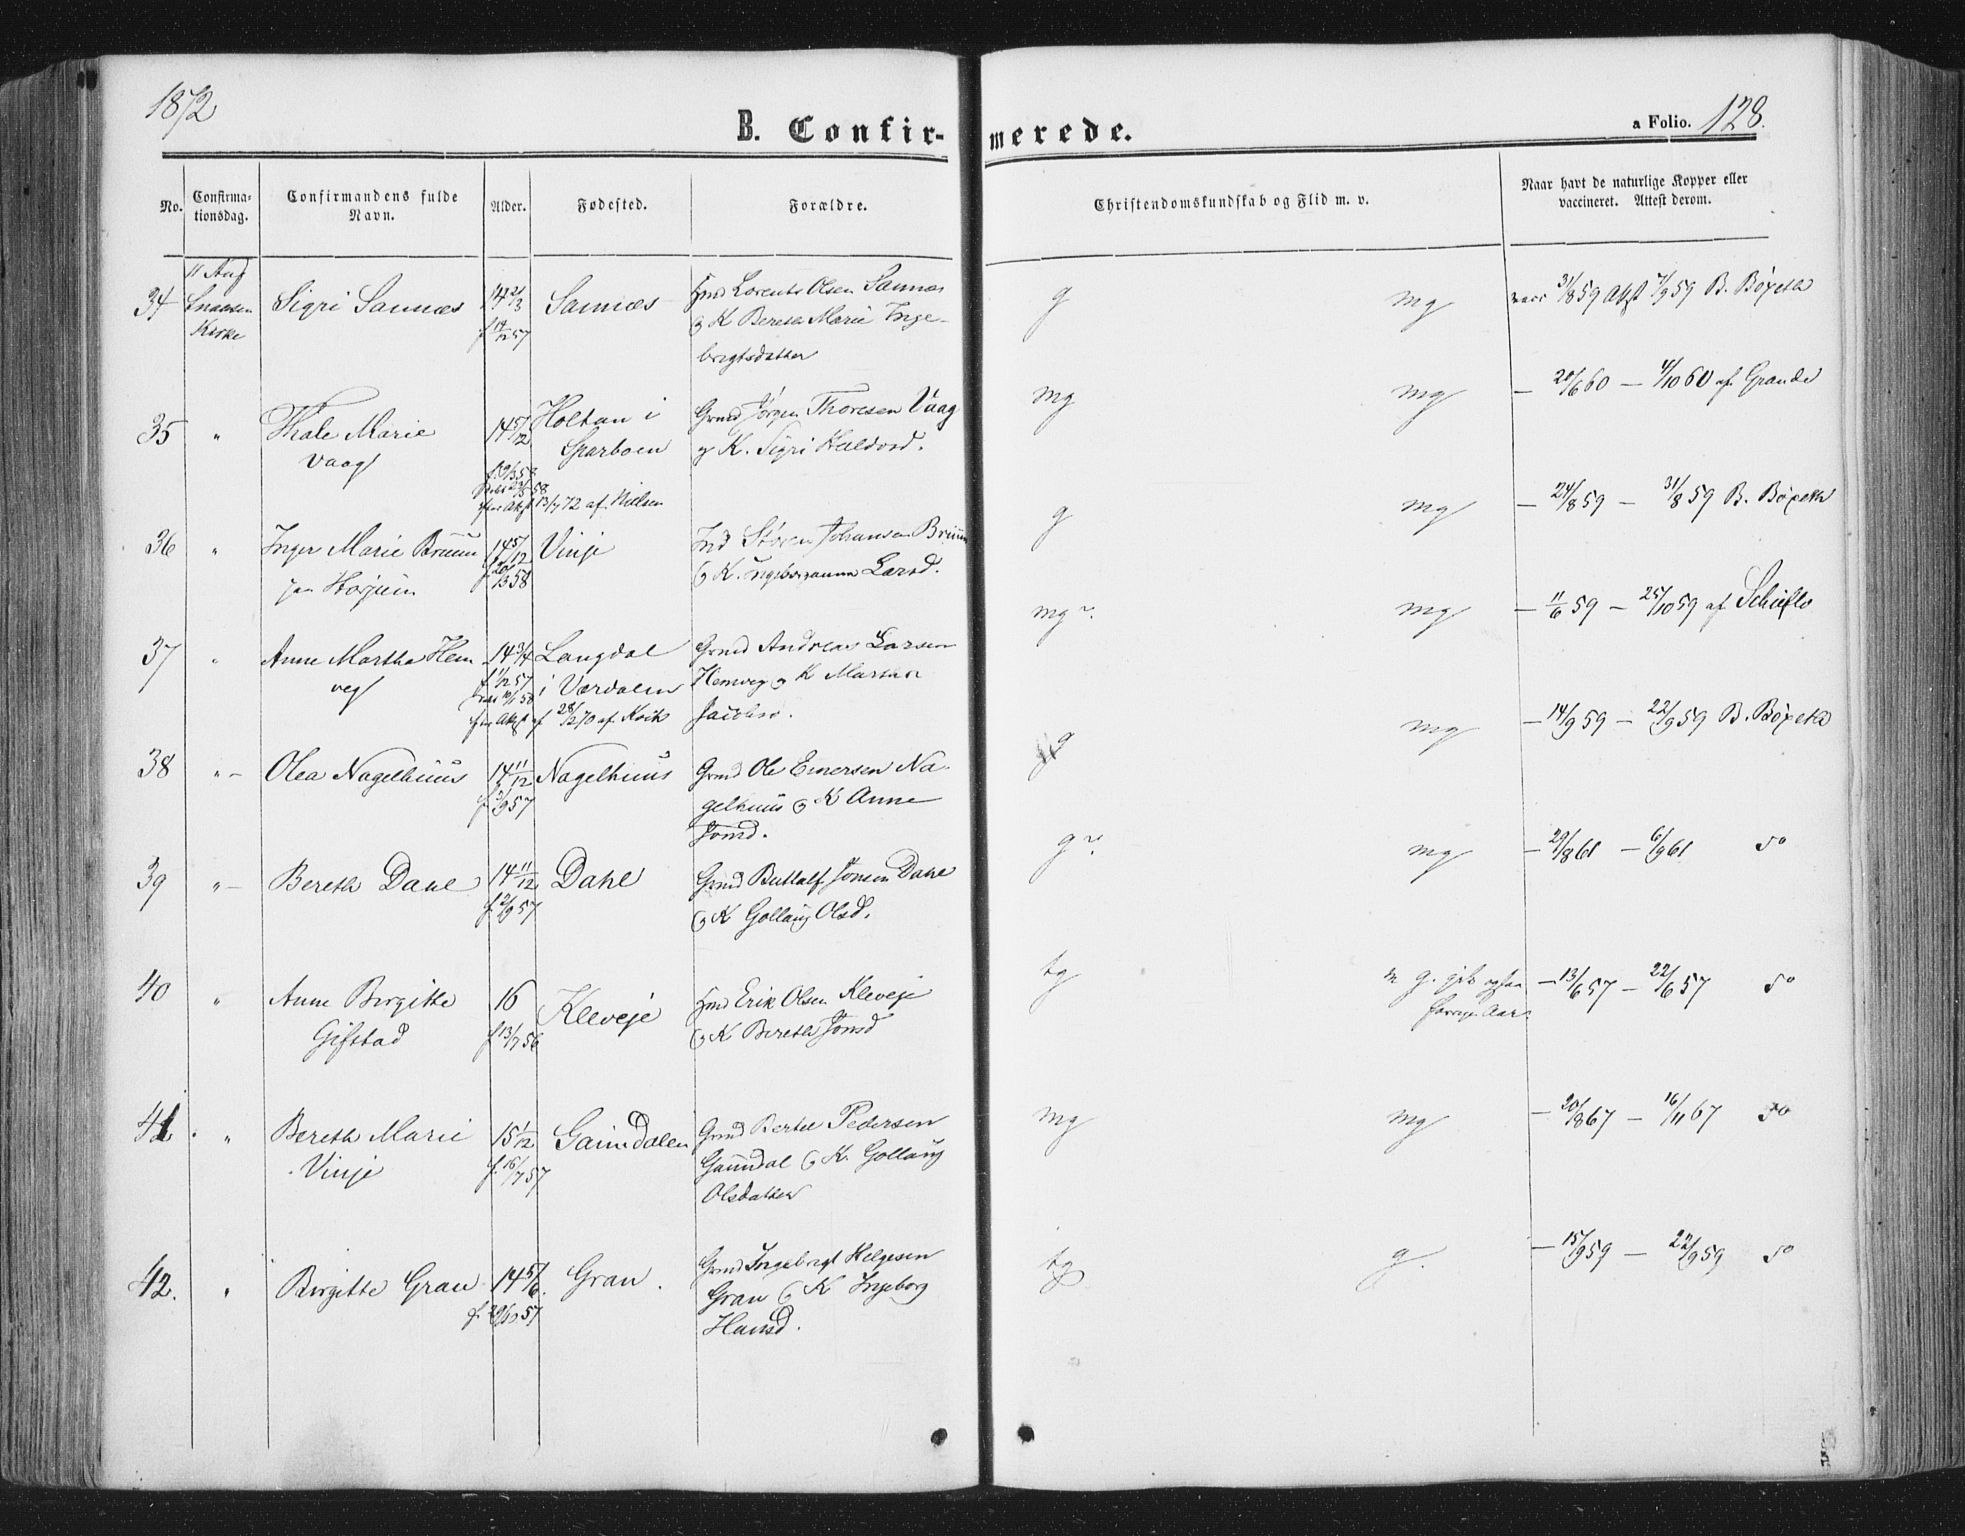 1872
B. Confir-
merede.
a Folio. 128.
No.
Confirma-
tionsdag.
Confirmandens fulde
Navn.
Alder.
Fødested.
Forældre.
Christendomskundskab og Flid m. v.
Naar havt de naturlige Kopper eller
vaccineret. Attest derom.
34
11 Aug
Snaasen
Kirke
Sigri Sannæs
14 2/3
f 19/12 57
Sannæs
Hmd Lorents Olsen Sannæs
og K Bereth Marie Inge-
brigtsdatter
g
mg
vacc 31/8 59 Attst 7/9 59 B. Bøgeth
35
"
Thale Marie
Vaag
14 5/12
f. 9/3 58
Holtan i
Sparboen
13/7 72 af. Nielsen
Grmd Jørgen Thoresen Vaag
og K. Sigri Haldord.
mg
mg
— 20/6 60 — 4/10 60 af. Grande
36
"
Inger Marie Bruun
Horjem
14 5/12
58
Vinje
Ind Søren Johansen Bruun
og K. Ingeboranna Larsd.
g
mg
— 24/8 59 — 31/8 59 B. Bøgeth
37
"
Anne Martha Hem
veg
14 3/4
f 1/12 57
Langdal
i Værdalen
28/2 70 af. Kvik
Grmd Andreas Larsen
Hemveg og K Martha
Jacobsd.
mg
mg
— 11/6 59 — 25/10 59 af Schieflo
38
" —
Olea Nagelhuus
14 11/12
f 3/9 57
Nagelhuus
Grmd Ole Einersen Na-
gelhuus og K Anne
Jonsd.
g
mg
— 14/9 59 — 22/9 59 B. Bøgeth
39
" —
Bereth Dahl
14 11/12
f. 2/9 57
Dahl
Grmd Buttolf Jonsen Dahl
og K Gollaug Olsd.
g
mg
— 29/8 61 — 6/9 61 do
40
"
Anne Birgitte
Gifstad
16
f 13/7 56
Kleveje
Hmd Erik Olsen Kleveje
og K Bereth Jonsd
tg
g.
forrige Aar
— 13/6 57 — 22/6 57 do
41.
"
Bereth Marie
Vinje
15 1/12
f. 16/7 57
Gaundalen
Grmd Bertel Pedersen
Gaundal og K. Gollaug
Olsdatter
mg
mg
— 20/8 67 — 16/11 67 do
42.
"
Birgitte Gran
14 5/6.
f. 29/10 57
Gran.
Grmd Ingebrigt Helgesen
Gran og K Ingeborg
Hansd.
tg
g.
— 15/9 59 — 22/9 59 do